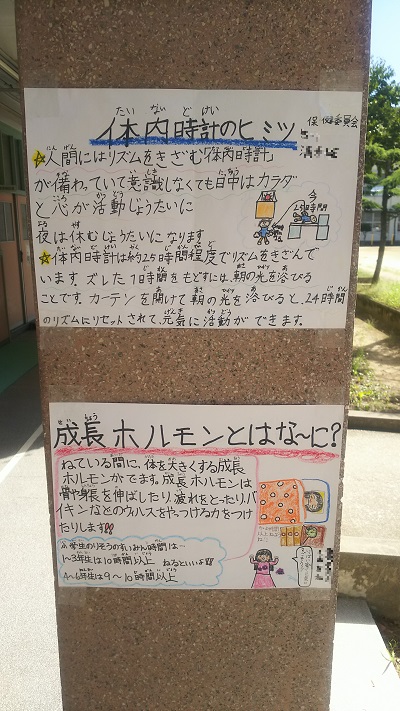 たい ない ど けい
体内時計のヒミツ
保健委員会
☆人間にはリズムをきざむ「体内時計」
が備わっていて意識しなくても日中はカラダ
と心が活動じょうたいに
夜は休むじょうたいになります
今
25時間
☆体内時計は約25時間程度でリズムをきざんで
います。ズレた1時間をもどすには、朝の光を浴びる
ことです。カーテンを開けて朝の光を浴びると、24時間
のリズムにリセットされて、元気に活動ができます。
せい ちょう
成長ホルモンとはな~に?
ねている間に、体を大きくする成長
ホルモンがでます。成長ホルモンは
骨や身長を伸ばしたり、疲れをとったり、バ
イキンなどのウィルスをやっつける力をつけ
たりします!!
小学生のりそうのすいみん時間は…
1~3年生は10時間以上 ねるといいよ!!
4~6年生は9~10時間以上